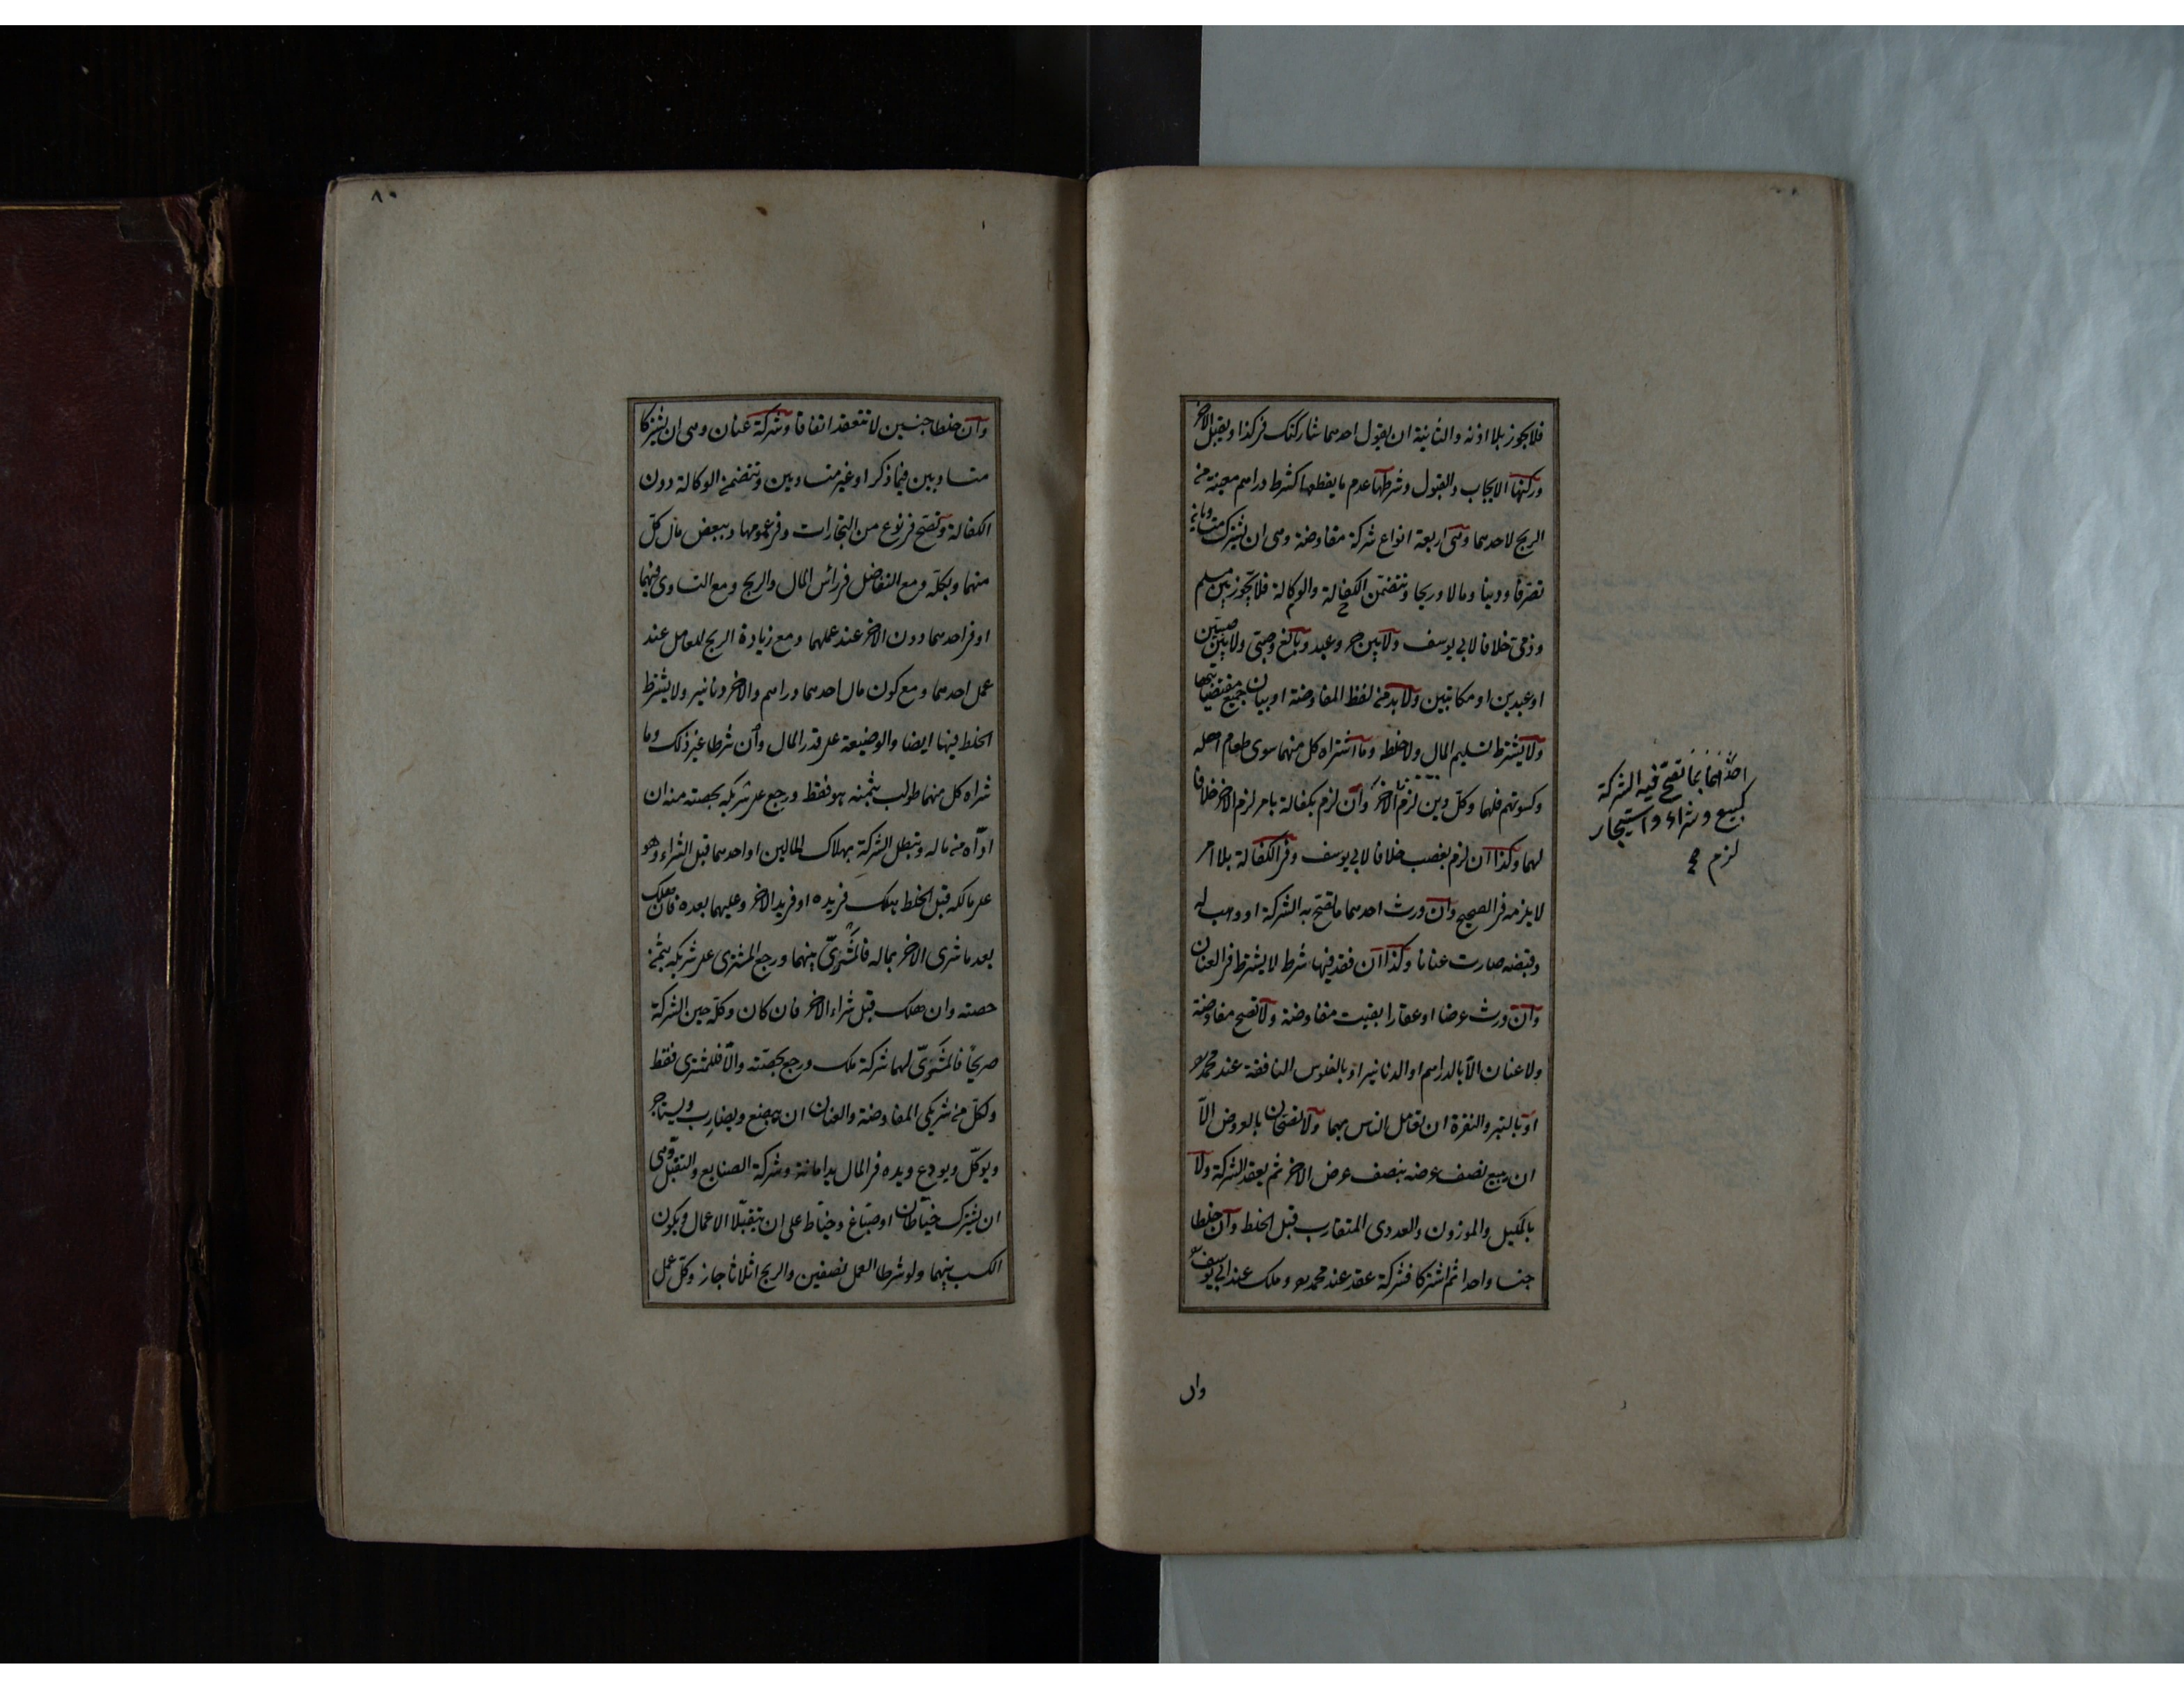 فلا يجوز بلا اذنه والثانية ان يقول احدهما شاركتك فى كذا ويقبل الاخر
وركنها الايجاب والقبول وشرطها عدم ما يقطعها كشرط دراهم معينة من
الربح لاحدهما وهى اربعة انواع شركة مفاوضة وهى ان يشترك متساويان
تصرفا ودينا ومالا وربحا وتتضمن الكفالة والوكالة فلا تجوز بين مسلم
وذمى خلافا لابى يوسف ولا بين حر وعبد وبالغ وصبى ولا بين صبيين
او عبدين او مكاتبين ولا بد من لفظ المفاوضة او بيان جميع مقتضياتها
ولا يشترط تسليم المال ولا خلطه وما اشتراه كل منهما سوى طعام اهله
وكسوتهم فلهما وكل دين لزم الاخر وان لزم بكفالة بامر لزم الاخر خلافا
لهما وكذا ان لزم بغصب خلافا لابى يوسف وفى الكفالة بلا امر
لا يلزمه فى الصحيح وان ورث احدهما ما تصح به الشركة او وهب له
وقبضه صارت عنانا وكذا ان فقد فيها شرط لا يشترط فى العنان
وان ورث عرضا او عقارا بقيت مفاوضة ولا تصح مفاوضة
ولا عنان الا بالدراهم او الدنانير او بالفلوس النافقة عند محمد
او بالتبر والنقرة ان تعامل الناس بهما ولا تصحان بالعروض الا
ان يبيع نصف عرضه بنصف عرض الاخر ثم يعقد الشركة ولا
بالمكيل والموزون والعددى المتقارب قبل الخلط وان خلطا
جنسا واحدا ثم اشتركا فشركة عقد عند محمد وملك عند ابى يوسف
وان
احدهما بما تصح فيه الشركة
كبيع وشراء واستيجار
لزم
٨٠
وان خلطا جنسين لا تنعقد اتفاقا وشركة عنان وهى ان يشتركا
متساويين فيما ذكر او غير متساويين وتتضمن الوكالة دون
الكفالة وتصح فى نوع من التجارات وفى عمومها وببعض مال كل
منهما وبكله ومع التفاضل فى رأس المال والربح ومع التساوى فيهما
او فى احدهما دون الاخر عند عملهما ومع زيادة الربح للعامل عند
عمل احدهما ومع كون مال احدهما دراهم والاخر دنانير ولا يشترط
الخلط فيها ايضا والوضيعة على قدر المال وان شرطا غير ذلك وما
شراه كل منهما طولب بثمنه هو فقط ورجع على شريكه بحصته منه ان
اداه من ماله وتبطل الشركة بهلاك المالين او احدهما قبل الشراء وهو
على مالكه قبل الخلط هلك فى يده او فى يد الاخر وعليهما بعده فان هلك
بعد ما شرى الاخر بماله فالمشرى بينهما ورجع المشترى على شريكه بثمن
حصته وان هلك قبل شراء الاخر فان كان وكله حين الشركة
صريحا فالمشرى لهما شركة ملك ورجع بحصته والا فللمشترى فقط
ولكل من شريكى المفاوضة والعنان ان يبضع ويضارب ويستاجر
ويوكل ويودع ويده فى المال يد امانة وشركة الصنايع والتقبل وهى
ان يشترك خياطان او صباغ وخياط على ان يتقبلا الاعمال ويكون
الكسب بينهما ولو شرطا العمل نصفين والربح اثلاثا جاز وكل عمل